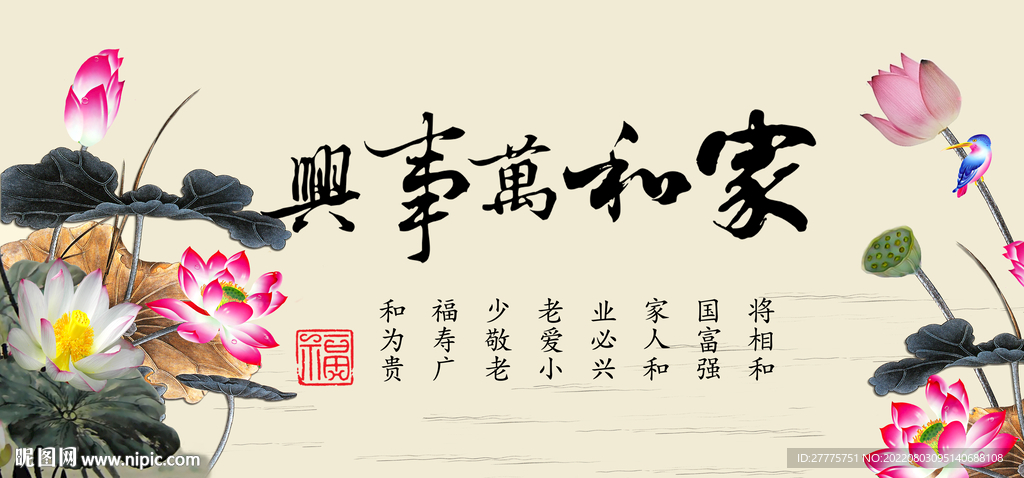 家和萬事興
将相和
国富强
家人和
业必兴
老爱小
少敬老
福寿广
和为贵
福
昵图网 www.nipic.com
ID:27775751 NO:20220803095140688108